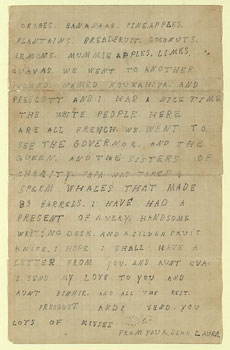 ORNGES, BANANAAS, PINEAPPLES,
PLANTAINS, BREADFRUIT, COCONUTS,
LEMONS, MUMMIE APPLES, LIMES,
GUAVAS, WE WENT TO ANOTHER
NAMED NOUKAHIVA, AND
PRESCOTT AND I HAD A NICE TIME
THE WHITE PEOPLE HERE
ARE ALL FRENCH. WE WENT TO
SEE THE GOVERNOR, AND THE
QUEEN, AND THE SISTERS OF
CHARITY. PAPA HAS TAKEN 2
SPERM WHALES THAT MADE
85 BARRELS. I HAVE HAD A
PRESENT OF A VERY HANDSOME
WRITING DESK. AND A SILVER FRUIT
KNIFE. I HOPE I SHALL HAVE A
LETTER FROM YOU AND AUNT
I SEND MY LOVE TO YOU AND
AUNT AND ALL THE REST.
PRESCOTT AND I SEND YOU
LOTS OF KISSES
FROM YOUR DEAR LAURA